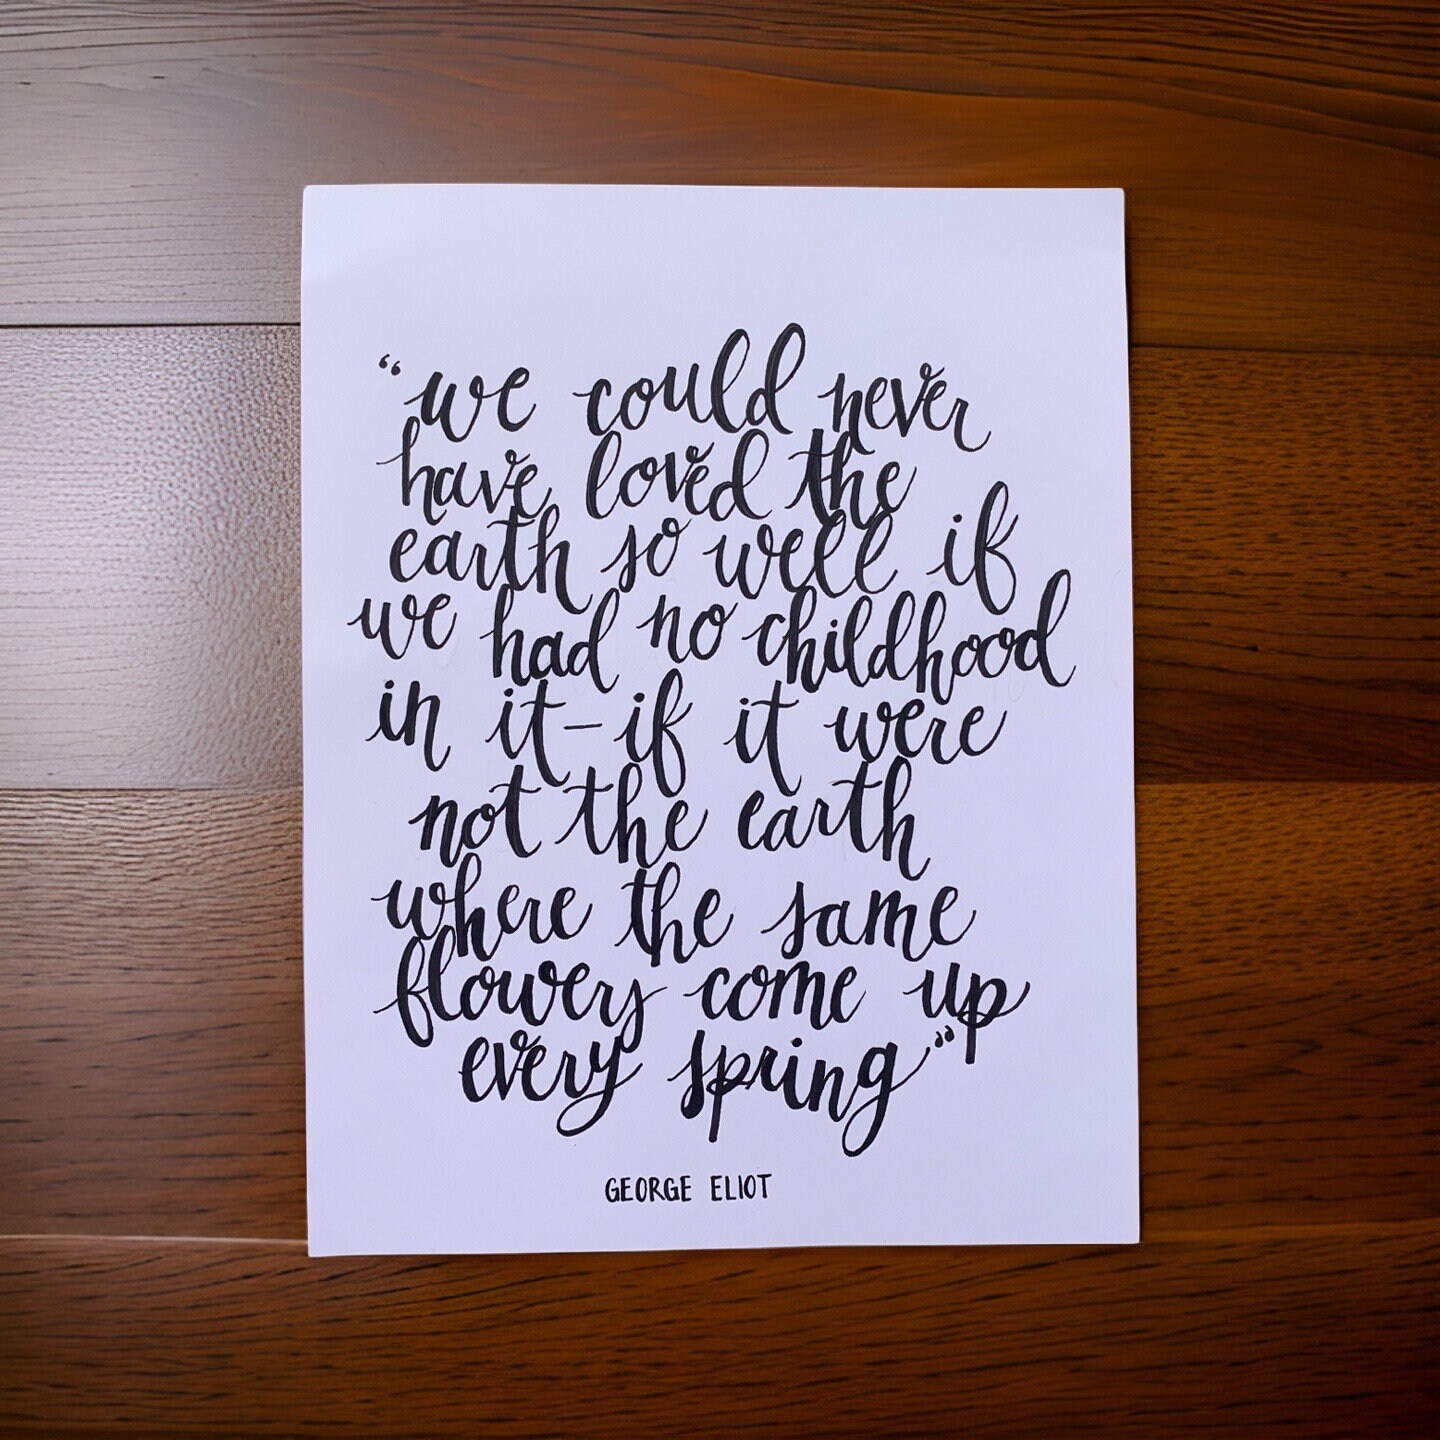 “we could never
have loved the
earth so well if
we had no childhood
in it-if it were
not the earth
where the same
flowers come up
every spring”
GEORGE ELIOT